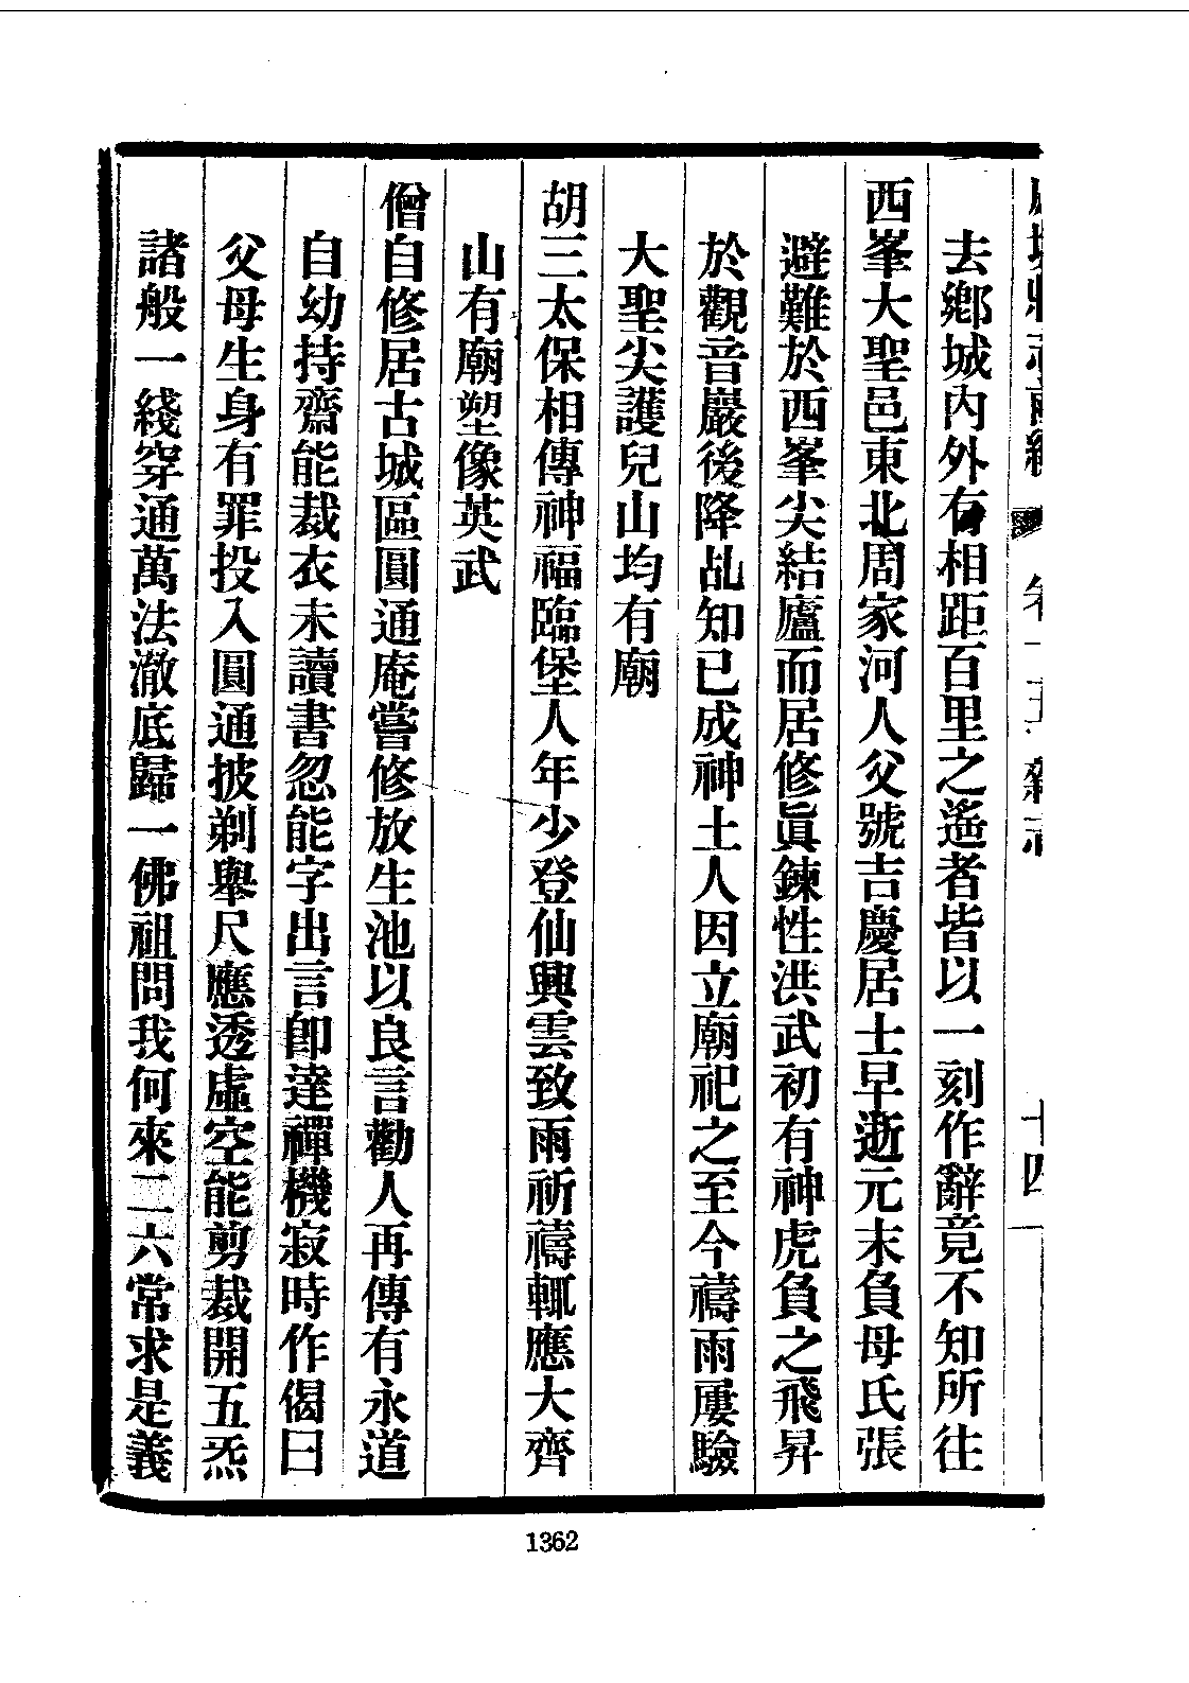 卷十五 雜志 十四
去鄉城內外有相距百里之遙者皆以一刻作辭竟不知所往
西峯大聖邑東北周家河人父號吉慶居士早逝元末負母氏張
避難於西峯尖結廬而居修眞鍊性洪武初有神虎負之飛昇
於觀音巖後降乩知已成神土人因立廟祀之至今禱雨屢驗
大聖尖護兒山均有廟
胡三太保相傳神福臨堡人年少登仙興雲致雨祈禱輒應大齊
山有廟塑像英武
僧自修居古城區圓通庵嘗修放生池以良言勸人再傳有永道
自幼持齋能裁衣未讀書忽能字出言卽達禪機寂時作偈曰
父母生身有罪投入圓通披剃舉尺應透虛空能剪裁開五炁
諸般一綫穿通萬法澈底歸一佛祖問我何來二六常求是義
1362